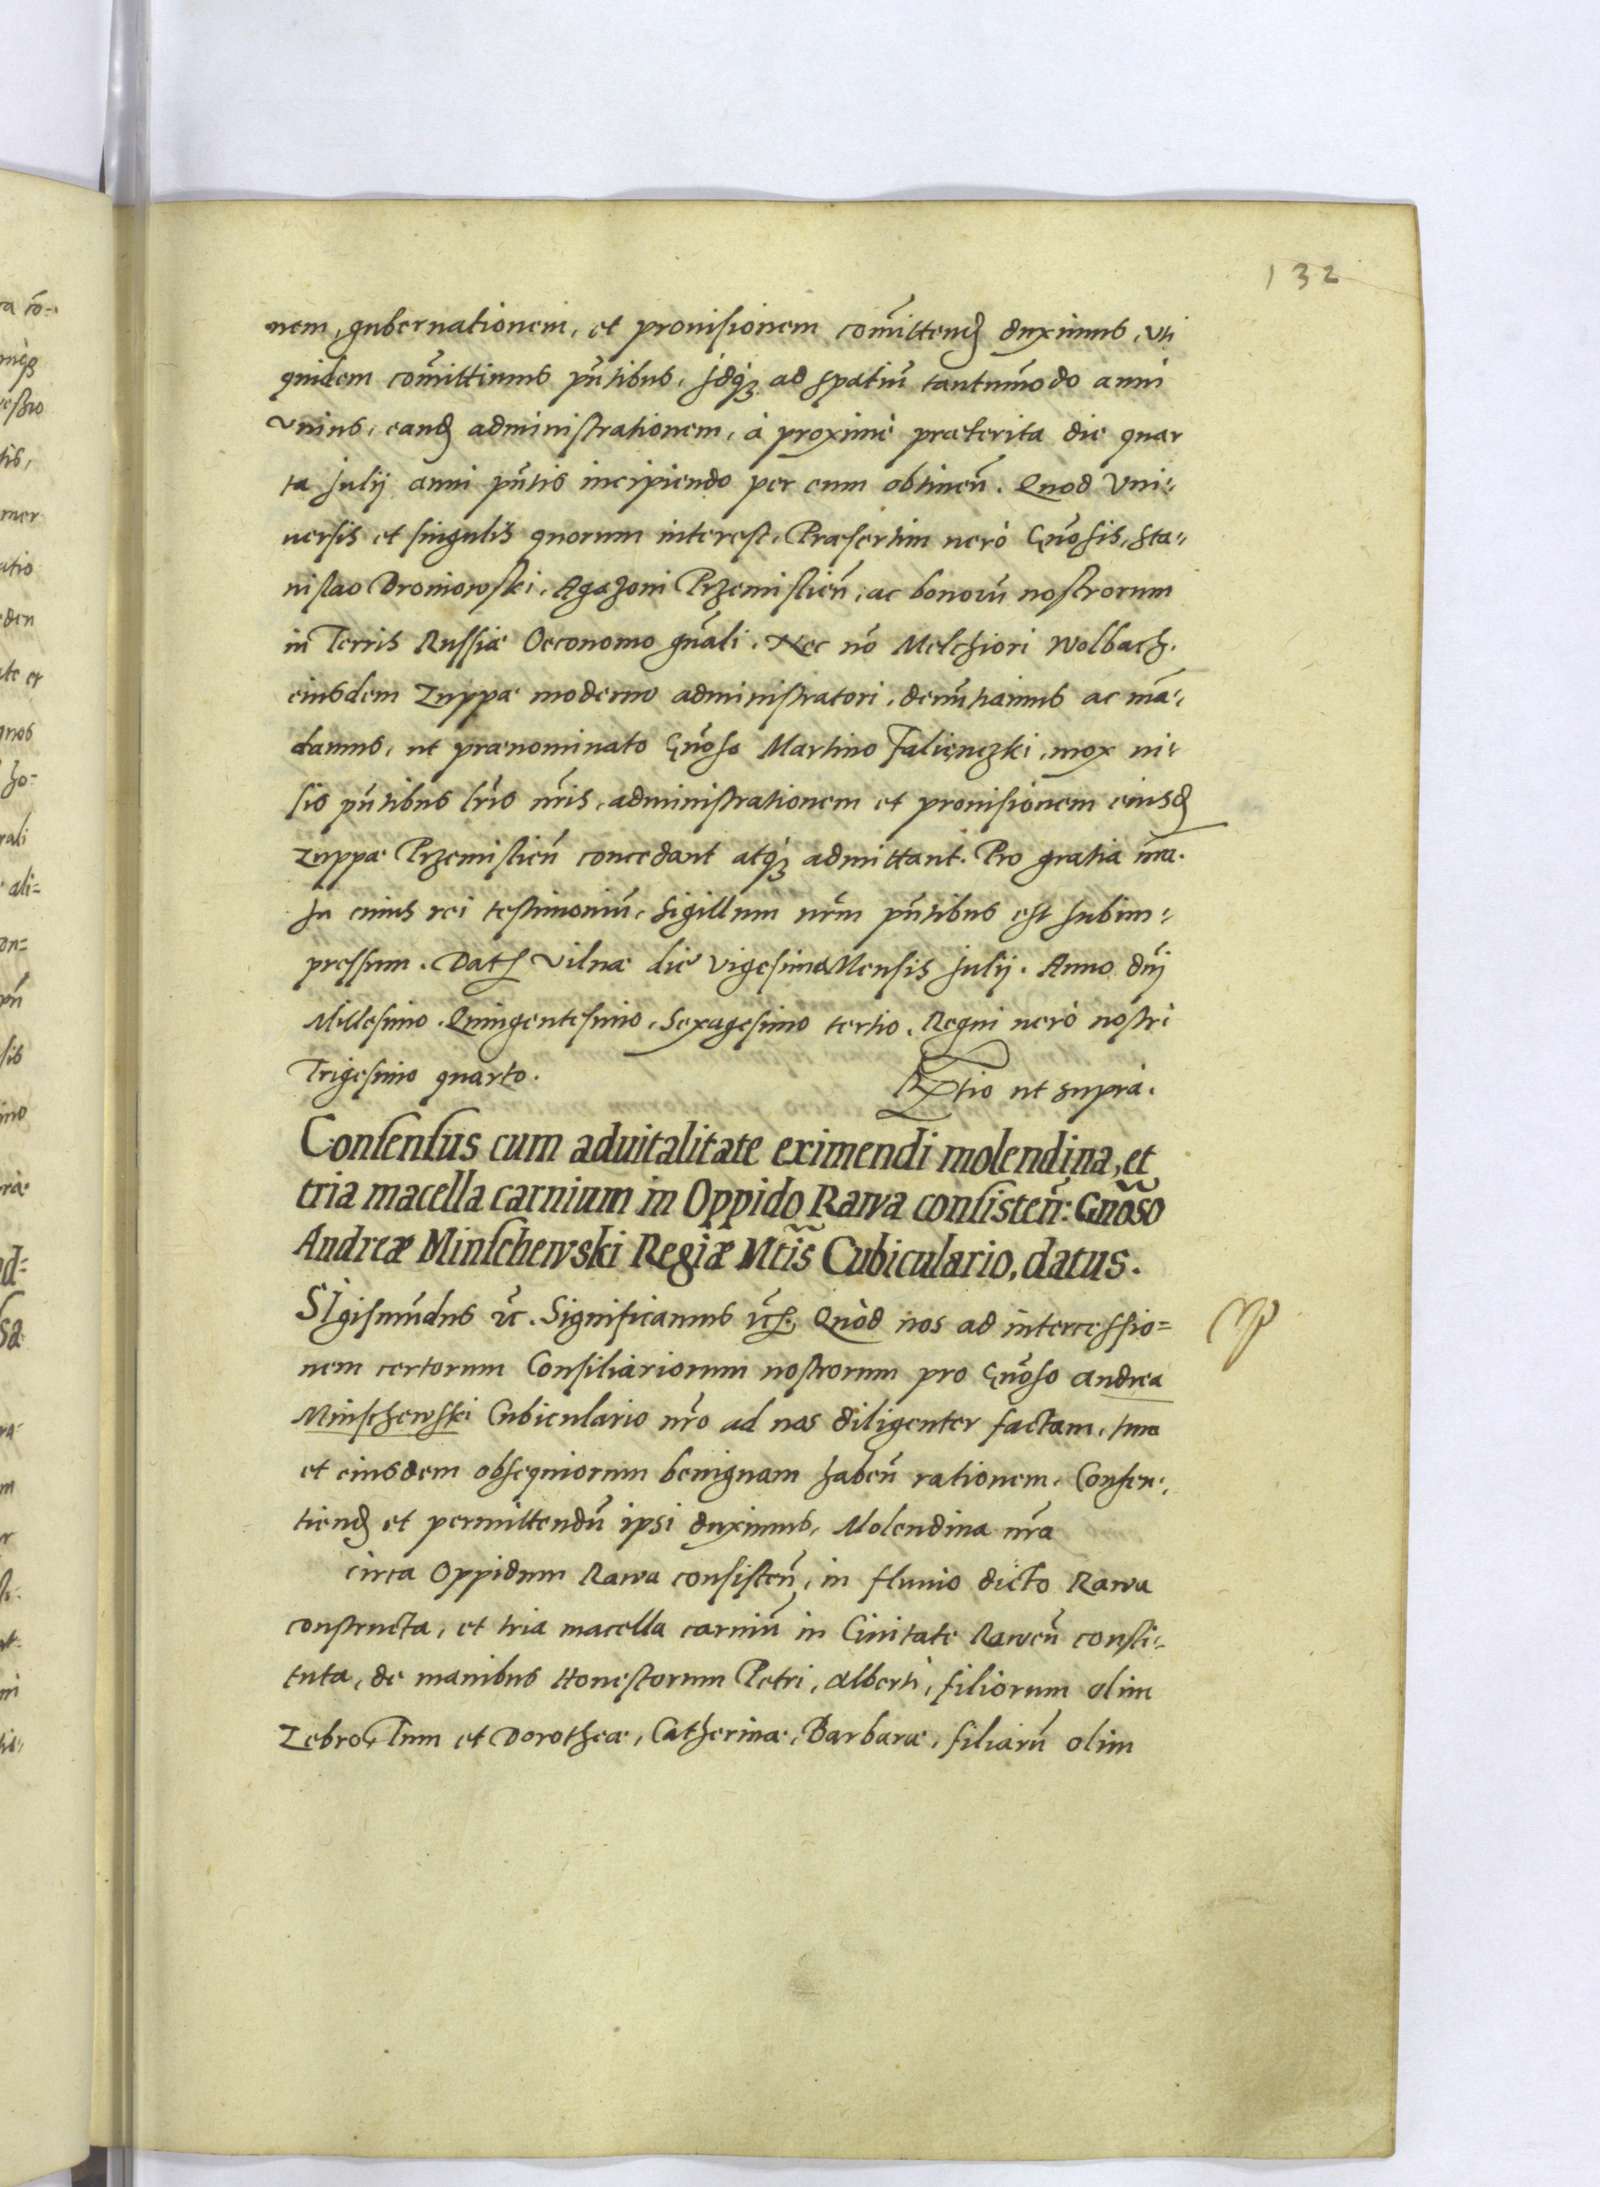 132
nem, gubernationem, et prouisionem com̃ittend duximus, uti
quidem com̃ittimus pñtibus, Idq₃ ad spatiũ tantum̃odo anni
Vnius, eand administrationem, à proximè præterita die quar
ta Julij anni pñtis incipiendo per eum obtineñ. Quod Vni-
uersis et singulis quorum interest, Præsertim uerò Gñosis, Sta-
nislao Droiowski, Agazoni Przemislieñ, ac bonorũ nostrorum
in Terris Russiæ Oeconomo gñali, Nec nõ Melchiori Wolbach,
eiusdem Zuppæ moderno administratori, denũtiamus ac mã-
damus, ut prænominato Gñoso Martino Falienczki, mox ui-
sis pñtibus lr̃is nr̃is, administrationem et prouisionem eiusd
Zuppæ Przemislieñ concedant atq₃ admittant. Pro gratia nr̃a.
In cuius rei testimoniũ, Sigillum nr̃m pñtibus est subim-
pressum. Dat Vilnæ die Vigesima Mensis Julij. Anno dñj
Millesimo. Quingentesimo, Sexagesimo tertio, Regni uerò nostri
Trigesimo quarto.
Rtio ut supra.
Consensus cum aduitalitate eximendi molendina, et
tria macella carnium in Oppido Rawa consisteñ: Gñoso
Andreæ Minschewski Regiæ Mt̃is Cubiculario, datus.
SIgismũdus ẽc. Significamus ẽc. Quòd nos ad intercessio=
nem certorum Consiliariorum nostrorum pro Gñoso Andrea
Minschewski Cubiculario nr̃o ad nos diligenter factam, tum
et eiusdem obsequiorum benignam habeñ rationem, Consen-
tiend et permittendũ ipsi duximus, Molendina nr̃a
circa Oppidum Rawa consisteñ, in fluuio dicto Rawa
constructa, et tria macella carniũ in Ciuitate Raweñ consti-
tuta, de manibus Honestorum Petri, Alberti, filiorum olim
Zebro, Tum et Dorotheæ, Catherinæ, Barbaræ, filiarũ olim